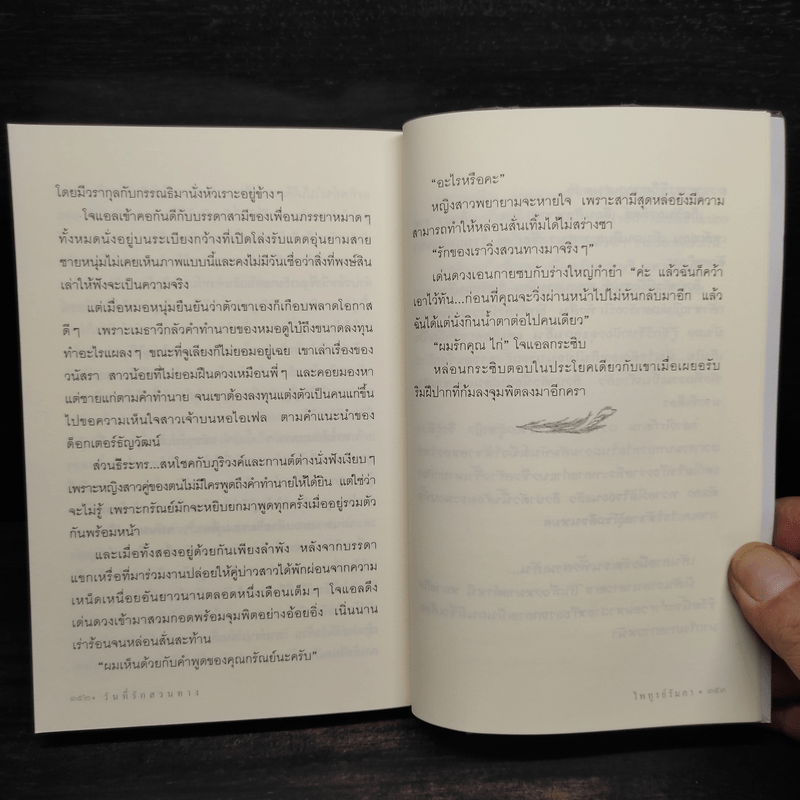 โดยมีวรากุลกับกรรณธิมานั่งหัวเราะอยู่ข้างๆ
โจแอลเข้าคอกันดีกับบรรดาสามีของเพื่อนภรรยาหมาดๆ
ทั้งหมดนั่งอยู่บนระเบียงกว้างที่เปิดโล่งรับแดดอุ่นยามสาย
ชายหนุ่มไม่เคยเห็นภาพแบบนี้และคงไม่มีวันเชื่อว่าสิ่งที่พงษ์สิน
เล่าให้ฟังจะเป็นความจริง
แต่เมื่อหมอหนุ่มยืนยันว่าตัวเขาเองก็เกือบพลาดโอกาส
ดีๆ เพราะเมธาวีกลัวคำทำนายของหมอดูใบ้ถึงขนาดลงทุน
ทำอะไรแผลงๆ ขณะที่จูเลียงก็ไม่ยอมอยู่เฉย เขาเล่าเรื่องของ
วนัสรา สาวน้อยที่ไม่ยอมฝืนดวงเหมือนพี่ๆ และคอยมองหา
แต่ชายแก่ตามคำทำนาย จนเขาต้องลงทุนแต่งตัวเป็นคนแก่ขึ้น
ไปขอความเห็นใจสาวเจ้าบนหอไอเฟล ตามคำแนะนำของ
ด็อกเตอร์ธัญวัฒน์
ส่วนธีระทร...สหโชคกับภูริวงศ์และกานต์ต่างนั่งฟังเงียบๆ
เพราะหญิงสาวคู่ของตนไม่มีใครพูดถึงคำทำนายให้ได้ยิน แต่ใช่ว่า
จะไม่รู้ เพราะกรัณย์มักจะหยิบยกมาพูดทุกครั้งเมื่ออยู่รวมตัว
กันพร้อมหน้า
และเมื่อทั้งสองอยู่ด้วยกันเพียงลำพัง หลังจากบรรดา
แขกเหรื่อที่มาร่วมงานปล่อยให้คู่บ่าวสาวได้พักผ่อนจากความ
เหน็ดเหนื่อยอันยาวนานตลอดหนึ่งเดือนเต็มๆ โจแอลดึง
เด่นดวงเข้ามาสวมกอดพร้อมจุมพิตอย่างอ้อยอิ่ง เนิ่นนาน
เร่าร้อนจนหล่อนสั่นสะท้าน
“ผมเห็นด้วยกับคำพูดของคุณกรัณย์นะครับ”
๓๕๒ • วันที่รักสวนทาง
“อะไรหรือคะ”
หญิงสาวพยายามจะหายใจ เพราะสามีสุดหล่อยังมีความ
สามารถทำให้หล่อนสั่นเทิ้มได้ไม่สร่างซา
“รักของเราวิ่งสวนทางมาจริงๆ”
เด่นดวงเอนกายซบกับร่างใหญ่กำยำ “ค่ะ แล้วฉันก็คว้า
เอาไว้ทัน...ก่อนที่คุณจะวิ่งผ่านหน้าไปไม่หันกลับมาอีก แล้ว
ฉันได้แต่นั่งกินน้ำตาต่อไปคนเดียว”
“ผมรักคุณ ไก่” โจแอลกระซิบ
หล่อนกระซิบตอบในประโยคเดียวกับเขาเมื่อเผยอรับ
ริมฝีปากที่ก้มลงจุมพิตลงมาอีกครา
ไพฑูรย์รัมภา • ๓๕๓